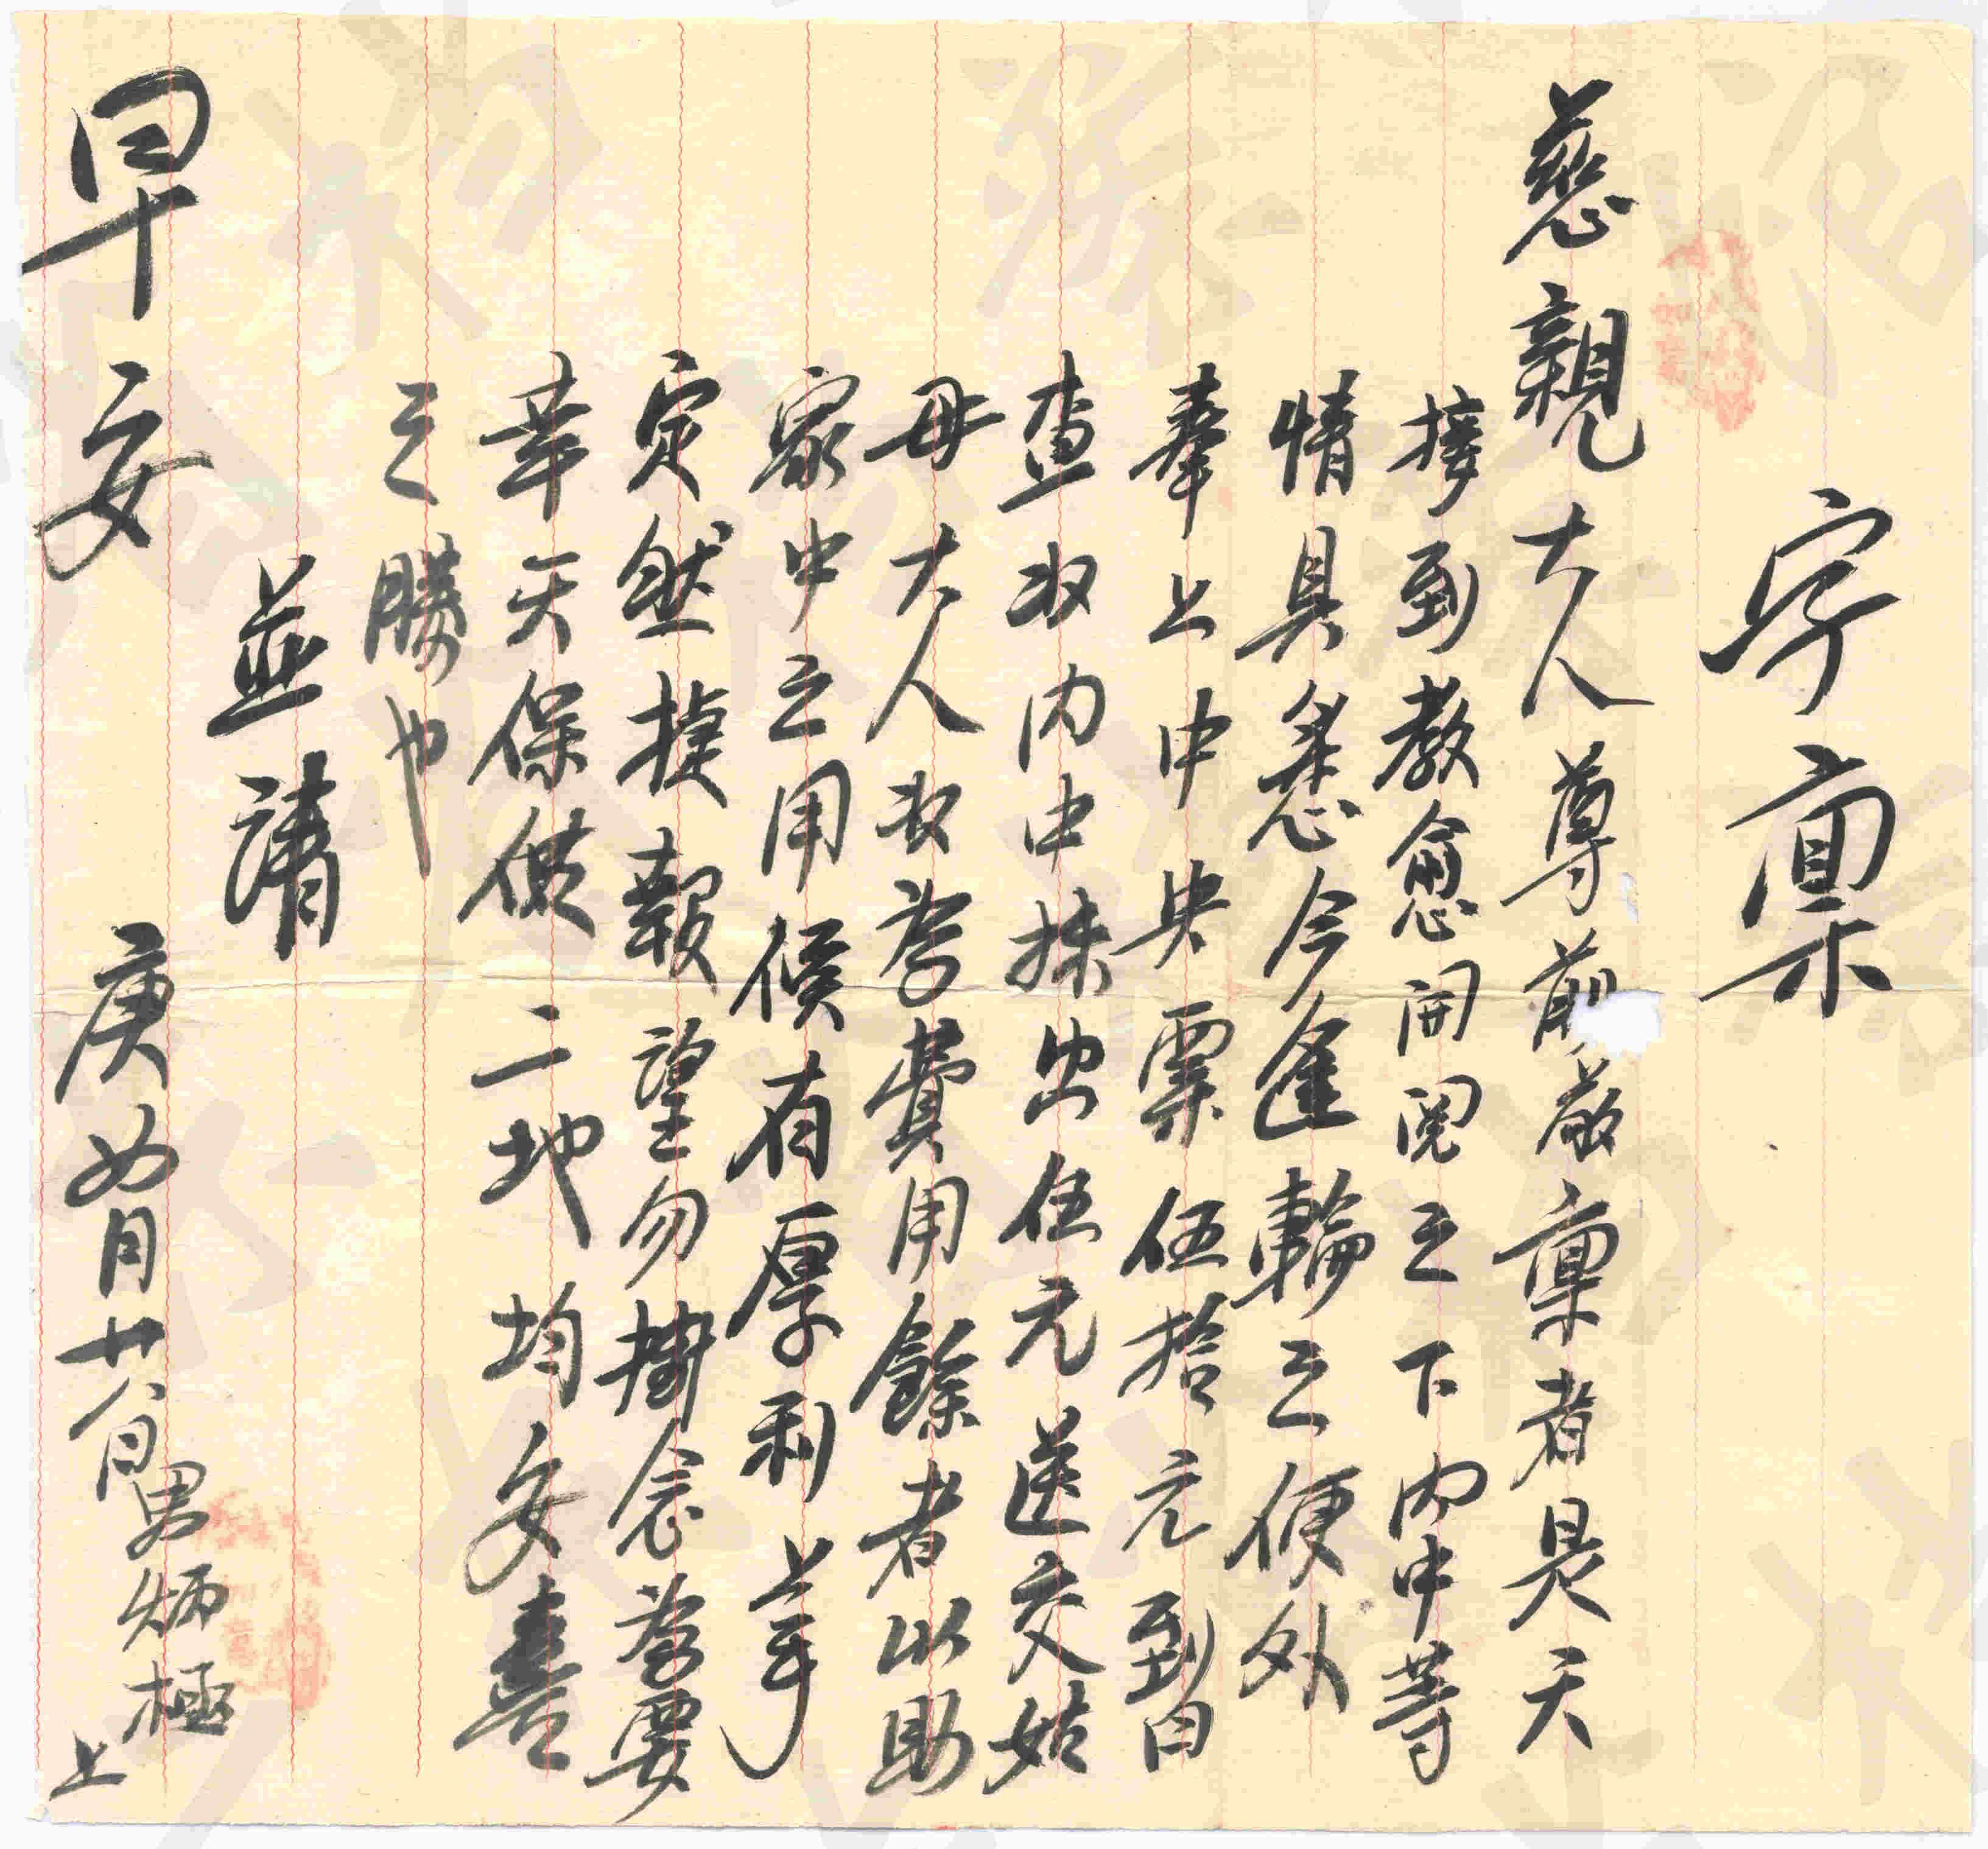 字稟
慈親大人尊前敬稟者是天
接到教愈開閱之下內中等
情具悉今逢輪之便外
奉上中央票伍拾元到日
查收內中抹出伍元送交姑
母大人收為費用餘者以助
家中之用候有厚利之年
定然揀報望勿掛念為要
幸天保佑二地均安喜
之勝也
並請
早安
庚四月廿八日男炳極上